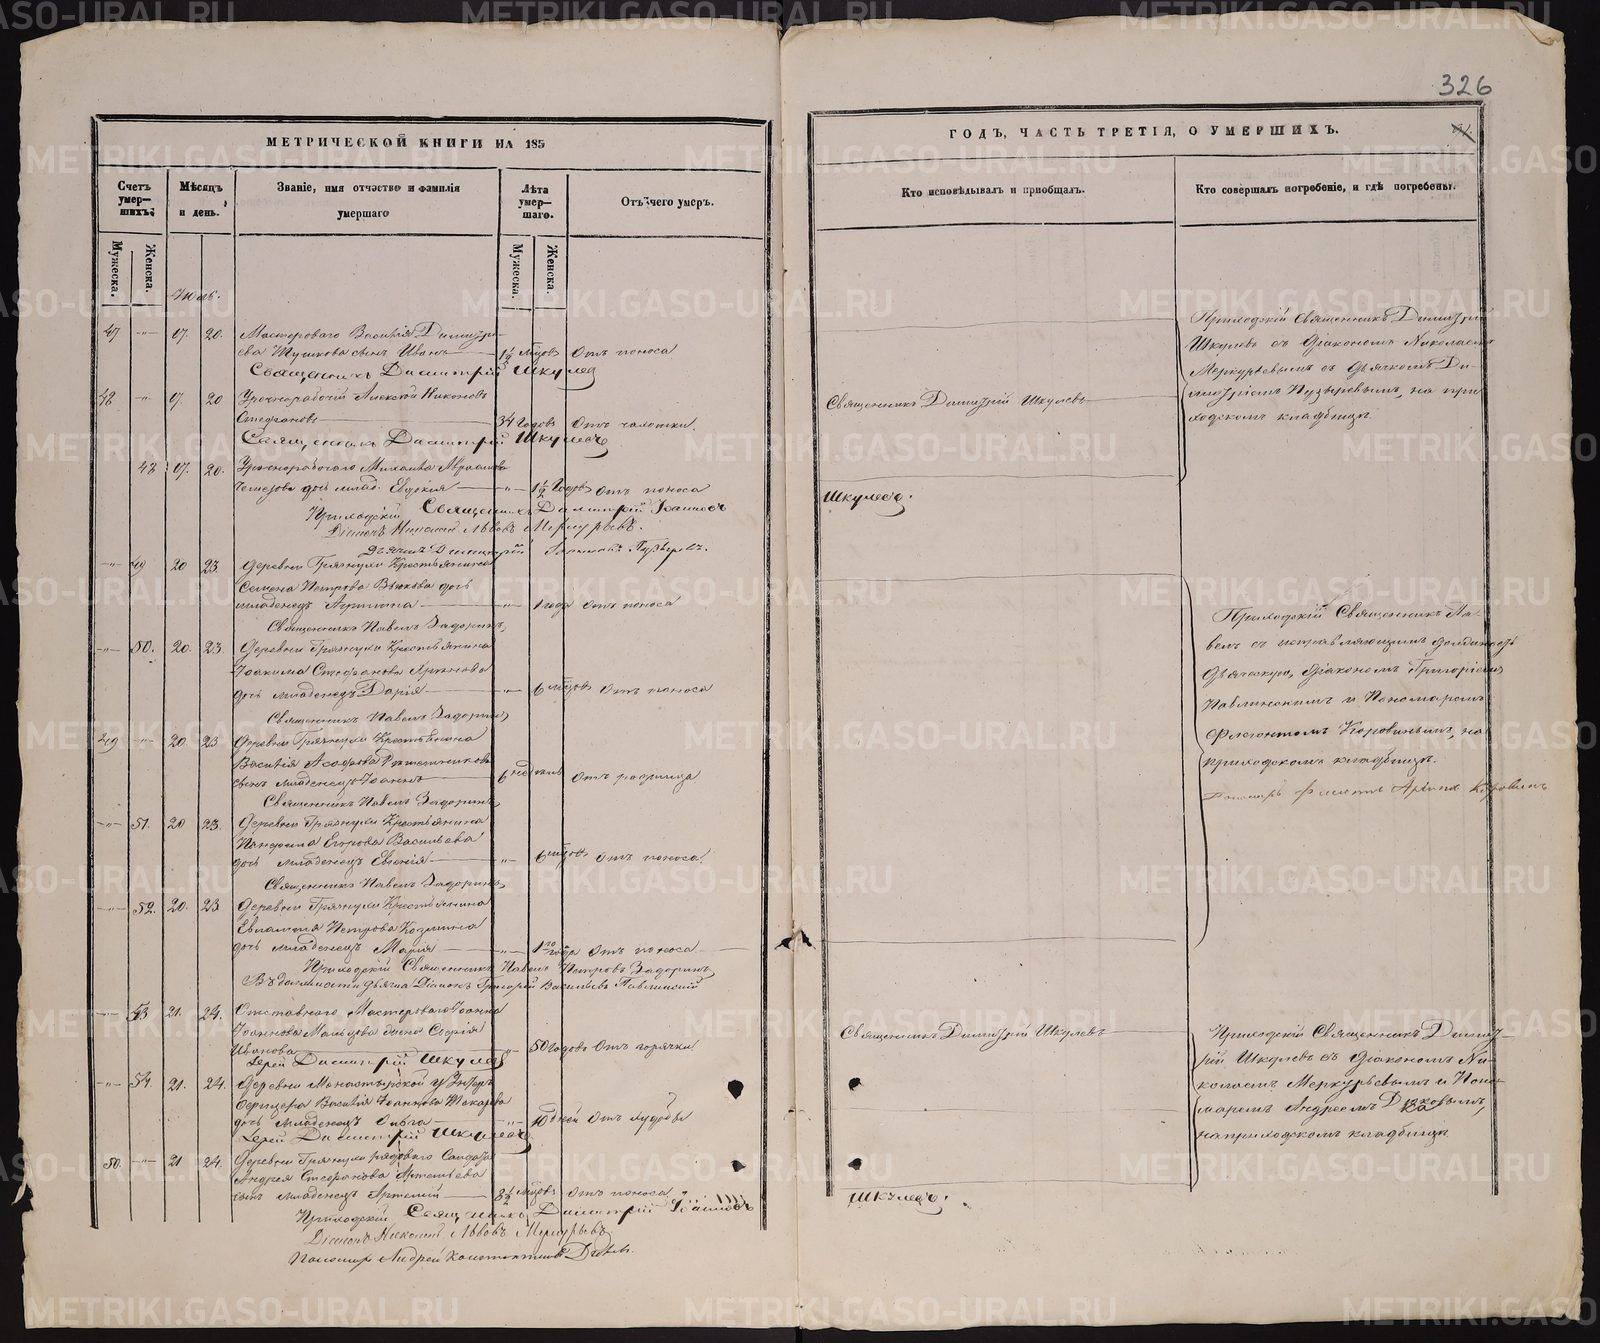 326
МЕТРИЧЕСКОЙ КНИГИ НА 185
Счетъ умер—шихъ.
Мѣсяцъ и день.
Званіе, имя отчество и фамилія умершаго
Лѣта умер—шаго.
Отъ чего умеръ.
Мужеска.
Женска.
Мужеска.
Женска.
Іюль.
47 —„— 17. 20. Мастероваго Василія Димитрі-
ева Тушкова сынъ Иванъ — 1½ мѣсяцъ Отъ поноса
Священникъ Димитрій Шкулевъ
48 —„— 17. 20 Урочнорабочій Алексѣй Никоновъ
Стефановъ — 34 годовъ Отъ чахотки.
Священникъ Димитрій Шкулевъ
48 17. 20. Урочнорабочаго Михаила
дочь млад. Евдокія —„— 1½ годовъ Отъ поноса
Приходскій Священникъ Димитрій Іоанновъ
Діаконъ Николай Львовъ Меркурьевъ.
Дьячекъ Димитрій Пузыревъ.
—„— 49 20 23. Деревни Грязнухи Крестьянина
Семена Петрова дочь
младенецъ —„— 1 года Отъ поноса
Священникъ Павелъ Задоринъ
—„— 50. 20. 23. Деревни Грязнухи Крестьянина
Іоакима Стефанова
дочь младенецъ Дарія —„— 6 мѣсяцовъ Отъ поноса
Священникъ Павелъ Задоринъ
49 —„— 20. 23 Деревни Грязнухи Крестьянина
Василія
сынъ младенецъ Іоаннъ — 6 недѣль Отъ родимца
Священникъ Павелъ Задоринъ
—„— 51. 20 23. Деревни Грязнухи Крестьянина
Егорова Васильева
дочь младенецъ Евгенія —„— 6 мѣсяцовъ Отъ поноса.
Священникъ Павелъ Задоринъ
—„— 52. 20. 23 Деревни Грязнухи Крестьянина
Евлампія Петрова Козмина
дочь младенецъ Марія —„— 1 го года Отъ поноса
Приходскій Священникъ Павелъ Петровъ Задоринъ
Въ должности дьячка Діаконъ Григорій Васильевъ Павлинскій
—„— 53 21. 24. Отставнаго Мастероваго Іоанна
Іоаннова жена Софія
Иванова —„— 50 годовъ Отъ горячки
Іерей Димитрій Шкулевъ
—„— 54. 21. 24. Деревни Монастырской Унтеръ
Офицера Василія Іоаннова Токарева
дочь младенецъ Ольга —„— 10 дней Отъ худобы
Іерей Димитрій Шкулевъ
50. —„— 21 24. Деревни Грязнухи рядоваго Солдата
Андрея Стефанова Артемьева
сынъ младенецъ Артемій — 3½ мѣсяцъ Отъ поноса
Приходскій Священникъ Димитрій Іоанновъ
Діаконъ Николай Львовъ Меркурьевъ
Пономарь Андрей Константиновъ
ГОДЪ, ЧАСТЬ ТРЕТІЯ, О УМЕРШИХЪ.
Кто исповѣдывалъ и приобщалъ.
Кто совершалъ погребеніе, и гдѣ погребены.
Приходскій Священникъ Димитрій
Шкулевъ съ Діакономъ Николаемъ
Меркурьевымъ съ Дьячкомъ Ди-
митріемъ Пузыревымъ, на при-
ходскомъ кладбищѣ.
Священникъ Димитрій Шкулевъ
Шкулевъ.
Приходскій Священникъ Па-
велъ съ исправляющимъ должность
Дьяческую, Діакономъ Григоріемъ
Павлинскимъ и Пономаремъ
Флегонтомъ Коровинымъ, на
приходскомъ кладбищѣ.
Пономарь Флегонтъ Коровинъ
Священникъ Димитрій Шкулевъ
Приходскій Священникъ Димит-
рій Шкулевъ съ Діакономъ Ни-
колаемъ Меркурьевымъ и Поно-
маремъ Андреемъ
на приходскомъ кладбищѣ
Шкулевъ.
METRIKI.GASO-URAL.RU